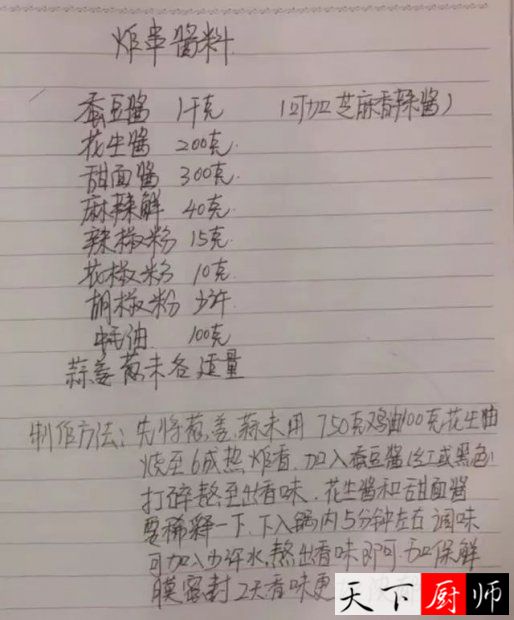 炸串酱料
蚕豆酱 1千克 (可加芝麻香辣酱)
花生酱 200克.
甜面酱 300克.
麻辣鲜 40克.
辣椒粉 15克.
花椒粉 10克.
胡椒粉 少许
蚝油 100克
蒜姜葱末各适量
制作方法: 先将葱.姜.蒜末用 750克鸡油100克花生油
烧至6成热炸香.加入蚕豆酱(红或黑色)
打碎熬至出香味.花生酱和甜面酱
要稀释一下.下入锅内5分钟左右调味
可加入少许水,熬出香味即可.加保鲜
膜密封2天香味更
天下厨师